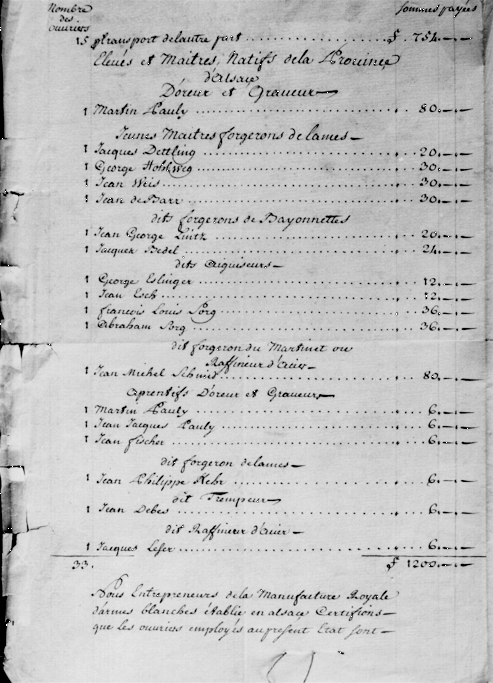 Nombre
des
ouvriers
Sommes payées
15 ptransport de lautre part ........ ₶ 754.
Elevés et Maitres, Natifs de la Province
d'alsace
Doreur et Graveur
1 Martin Pauly ........ 80.
Jeunes Maitres forgerons de lames
1 Jacques Dettling ........ 20.
1 George ........ 30.
1 Jean Weis ........ 30.
1 Jean de Barr ........ 30.
dits forgerons de Bayonnettes
1 Jean George Lintz ........ 20.
1 Jacques Bedel ........ 24.
dits aiguiseurs
1 George Eslinger ........ 12.
1 Jean Esch ........ 12.
1 françois Louis Sorg ........ 36.
1 Abraham Sorg ........ 36.
dit forgeron du Martinet ou
Raffineur d'acier
1 Jean Michel Schmid ........ 80.
aprentifs Doreur et Graveurs
1 Martin Pauly ........ 6.
1 Jean Jacques Pauly ........ 6.
1 Jean fischer ........ 6.
dit forgeron de lames
1 Jean Philippe Kehr ........ 6.
dit Trempeur
1 Jean Debes ........ 6.
dit Raffineur d'acier
1 Jacques Leser ........ 6.
33. ₶ 1200.
Nous Entrepreneurs de la Manufacture Royale
d'armes blanches établie en alsace Certifions
que les ouvriers employés au present Etat sont